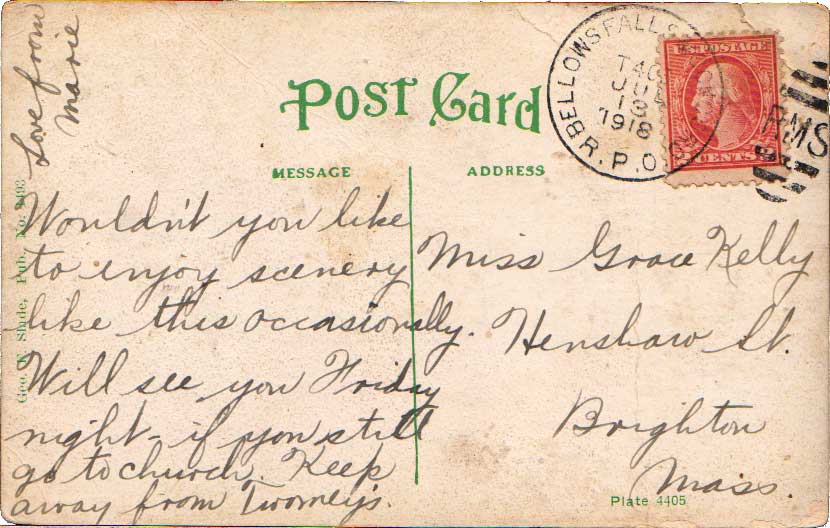 Love from
Marie
Post Card
MESSAGE
ADDRESS
BELLOWS FALLS
JUL
13
1918
R.P.O.
RMS
U.S. POSTAGE
CENTS
Geo. E. Slade, Pub. No.
Wouldn't you like
to enjoy scenery
like this occasionally.
Will see you Friday
night - if you still
go to church. Keep
away from Twomey's.
Miss Grace Kelly
Henshaw St.
Brighton
Mass.
Plate 4405